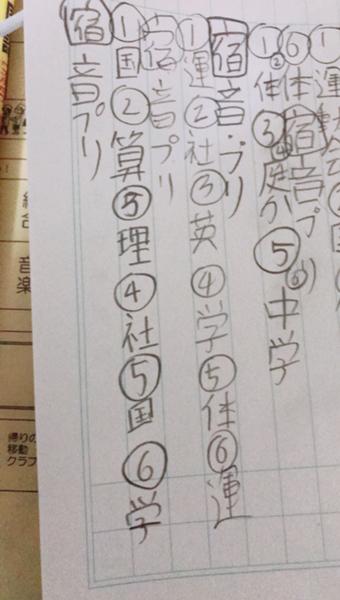 ①運
⑥体宿音プリ
①②体③④庭か⑤⑥中学
宿音・プリ
①運②社③英④学⑤体⑥運
宿音プリ
①国②算③理④社⑤国⑥学
宿音プリ
音楽
帰りの
移動
クラブ